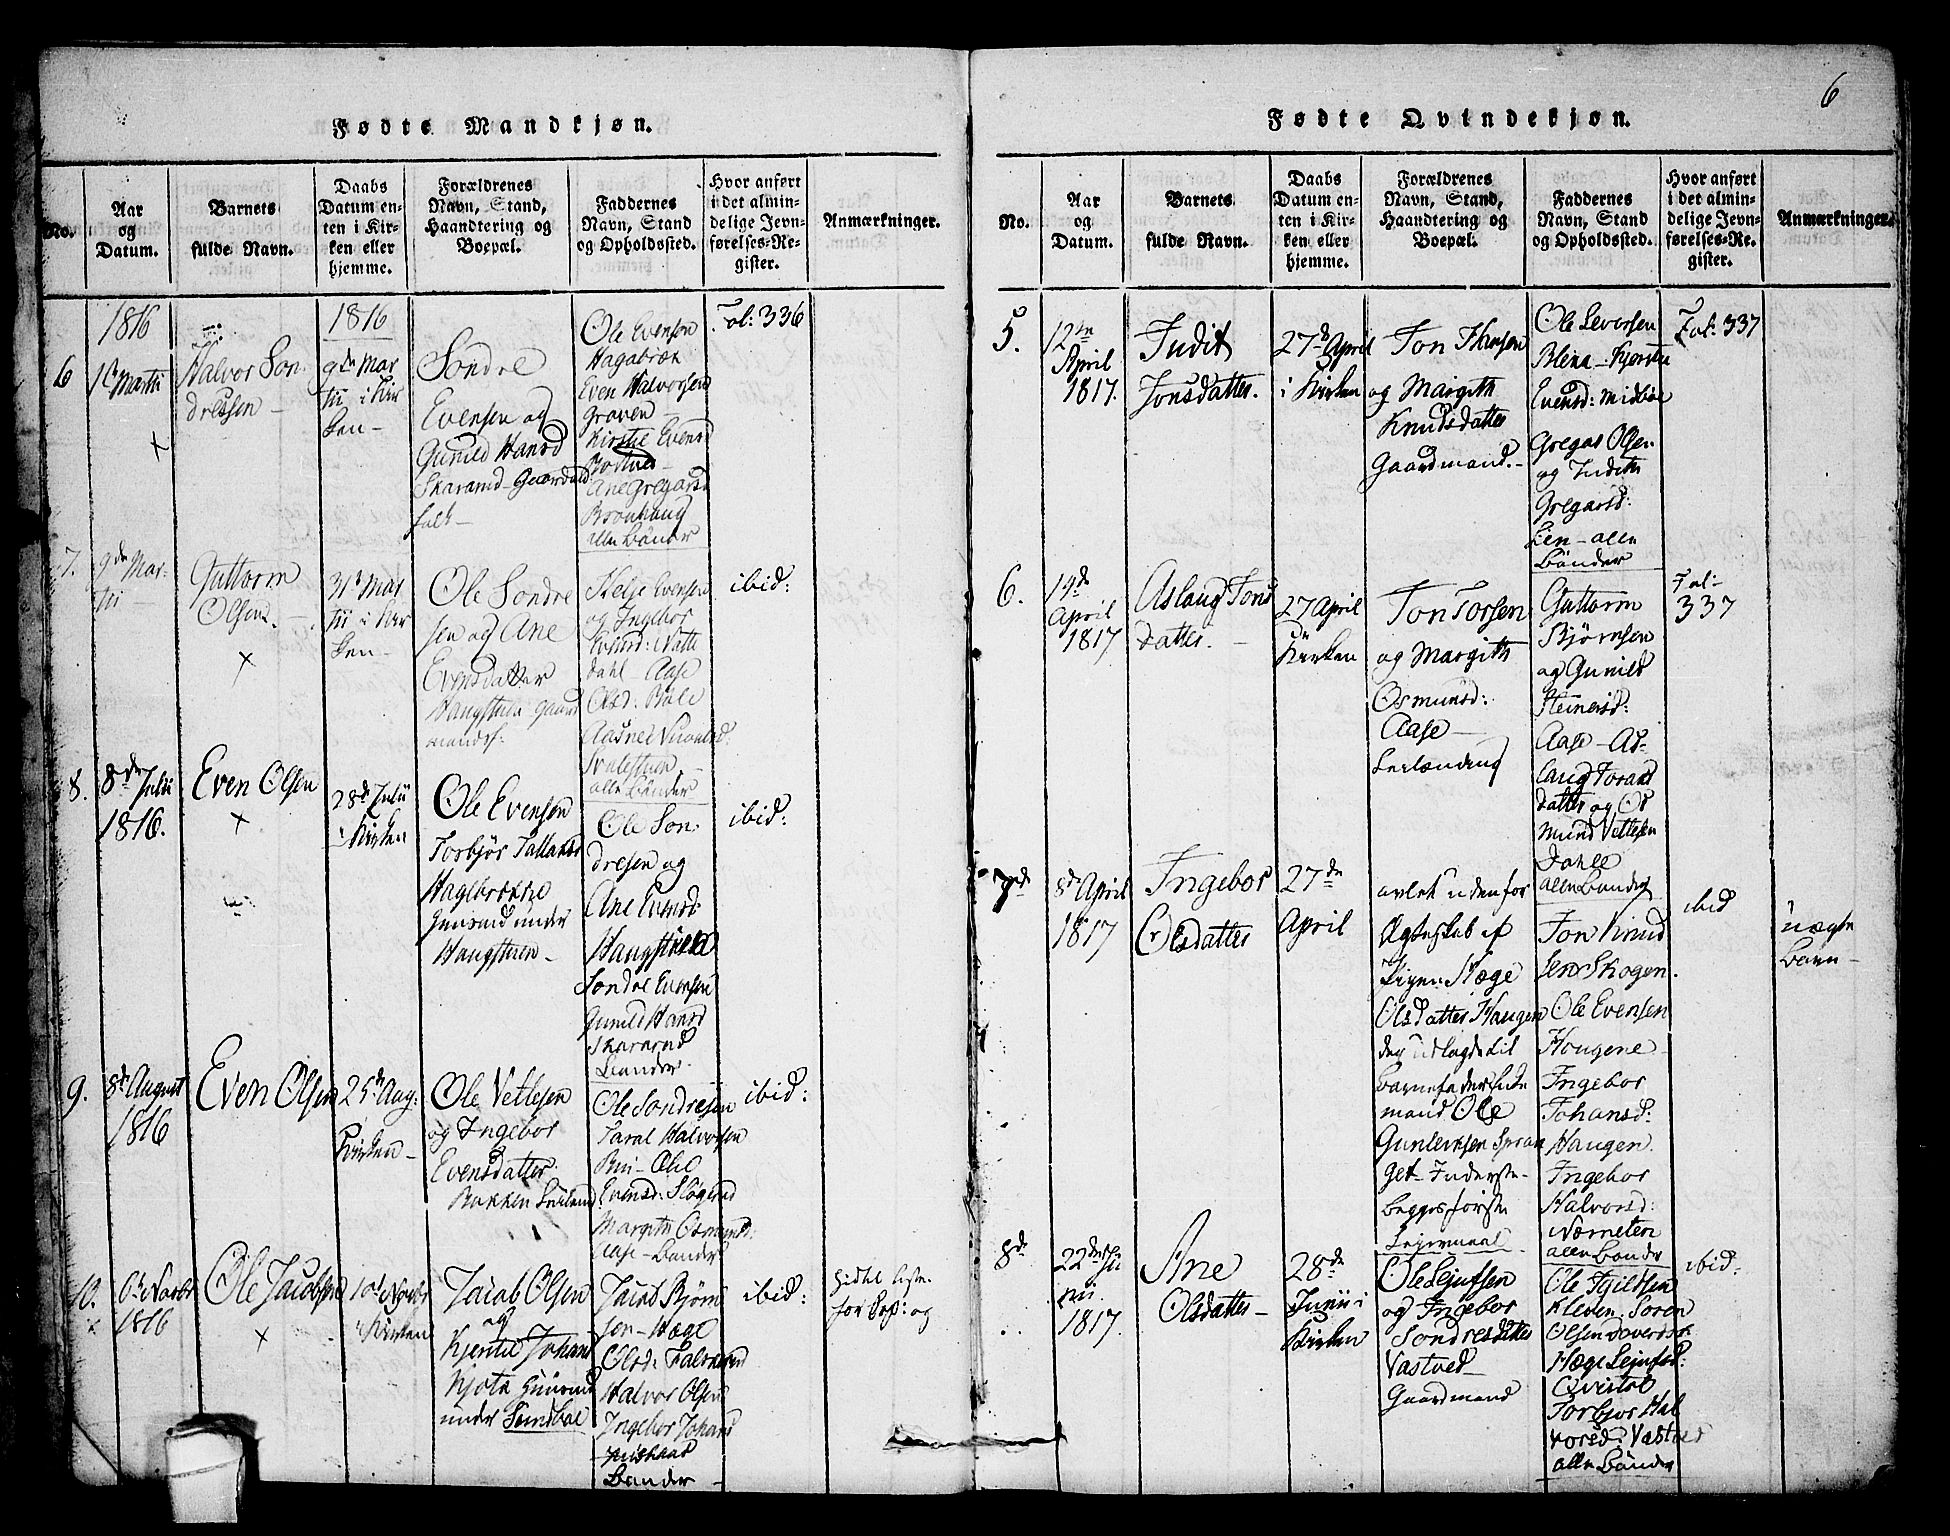 Fødte Mandkjøn.
No.
Aar
og
Datum.
Barnets
fulde Navn.
Daabs
Datum en-
ten i Kir-
ken eller
hjemme.
Forældrenes
Navn, Stand,
Haandtering og
Boepæl.
Faddernes
Navn, Stand
og Opholdssted.
Hvor anført
i det almin-
delige Jevn-
førelses-Re-
gister.
Anmærkninger.
6
1816
1ste Martii
Halvor Son-
dressen
1816
9de Mar
tii i Kir
ken
Sondre
Evensen og
Gunild Hansd
Skararud
folk
Ole Evensen
Hagabræk
Even Halvorsen
Graven
Kirstie Evensd
Ane Gregarsd
alle Bønder
Fol: 336
7.
9de Mar-
tii
Guttorm
Olsen.
31te Mar
tii i Kir
ken
Ole Sondre
sen og Ane
Evensdatter
Haugstuen gaard
mandsf:
Helje Evensen
og Ingebor
Evensd: Vette
dahl - Aase
Olsd: Bøle
alle Bønder
ibid:
8.
8de Julii
1816.
Even Olsen
28de Julii
i Kirken
Ole Evensen
Torbjør
Hagebrække
under
Haugstuen
Ole Son-
dresen og
Ane Evensd:
Haugstuen
Sondre Evensen
Gunild Hansd
Skararud
Bønder
ibid:
9.
8de August
1816
Even Olsen
25de Aug:
Kirken
Ole Vetlesen
og Ingebor
Evensdatter
Bakken
Ole Sondresen
Taral Halvorsen
Evensd:
Margith Osmunds:
Aase - Bønder
ibid:
10.
6te Novbr
1816
Ole Jacobsen
10de Novbr
i Kirken
Jacob Olsen
og
Kjerstie Johans
under Sundbøe
Jacob Bjørn
sen - Hæge
Olsd:
Halvor Olsen
Ingebor Johans
Bønder
ibid:
6
Fødte Qvindekjøn.
No.
Aar
og
Datum.
Barnets
fulde Navn.
Daabs
Datum en-
ten i Kir-
ken eller
hjemme.
Forældrenes
Navn, Stand,
Haandtering og
Boepæl.
Faddernes
Navn, Stand
og Opholdssted.
Hvor anført
i det almin-
delige Jevn-
førelses-Re-
gister.
Anmærkninger.
5.
12te
April
1817.
Judit
Jonsdatter.
27de April
i Kirken
Jon Hansen
og Margith
Knudsdatter
Gaardmand.
Ole Leversen
Blena - Kjerstie
Evensd: Midbøe
Gregar Olsen
og Judith
Gregarsd:
Lien - alle
Bønder
Fol: 337
6.
19de
April
1817
Aslaug Jons
datter.
27 April
i
Kirken
Jon Torsen
og Margith
Osmunsd:
Aase
Leilænding
Guttorm
Bjørnsen
og Gunild
Steinersd:
Aase - As-
laug Torsd
datter og Os
mund Vetlesen
Dahle
alle Bønder
Fol:
337
7de
8de April
1817
Ingebor
Olsdatter
27de
April
avlet udenfor
Ægteskab af
Pigen Hæge
Olsdatter Haugen
der udlagde til
Barnefader
mand Ole
Gunleiksen
get - Inderste
begges første
Leiermaal
Jon Knud
sen Skogen
Ole Evensen
Hougene
Ingebor
Johansd:
Haugen
Ingebor
Halvorsd:
alle Bønder
ibid
uægte
Barn
8de
22de Ju
nii
1817.
Ane
Olsdatter
28de
Junii i
Kirken
Ole Lejufsen
og Ingebor
Sondresdatter
Vastved
Gaardmand
Ole
Kleven, Soren
Olsen
Hæge Lejufsd:
Torbjor Hal
vorsd: Vastved
alle Bønder
ibid: